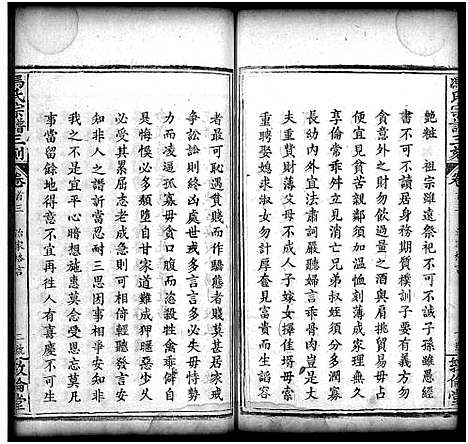 馮氏宗譜三刻
飽粧 祖宗雖遠祭祀不可不誠子孫雖愚經
書不可不讀居身務期質樸訓子要有義方勿
貪意外之財勿飲過量之酒與肩挑貿易勿占
便宜見貧苦親鄰須加溫卹刻薄成家理無久
享倫常乖舛立見消亡兄弟叔姪須多分潤寡
長幼內外宜法肅詞嚴聽婦言乖骨肉豈是丈
夫重資財薄父母不成人子嫁女擇佳壻毋索
重聘娶媳求淑女勿計厚奩見富貴而生諂容
敦倫堂
馮氏宗譜三刻
卷首三 治家格言
者最可恥遇貧賤而作驕態者賤莫甚居家戒
爭訟訟則終凶處世戒多言言多必失毋恃勢
力而凌逼孤寡毋貪口腹而恣殺牲禽乖僻自
是悔悞必多頹墮自甘家道難成狎暱惡少久
必受其累屈志老成急則可相倚輕聽發言安
知非人之譖訴當忍耐三思因事相爭安知非
我之不是宜平心暗想施惠莫念受恩莫忘凡
事當留餘地得意不宜再往人有喜慶不可生
敦倫堂